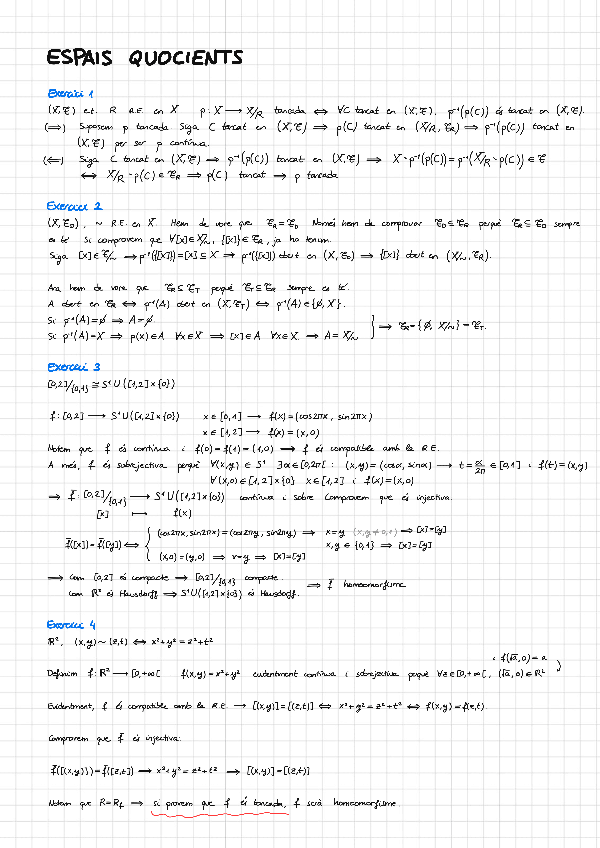 ESPAIS QUOCIENTS
Exercici 1
(X,𝒯) e.t. R R.E. en X p: X → X/R tancada ⟺ ∀C tancat en (X,𝒯), p⁻¹(p(C)) és tancat en (X,𝒯).
(⟹) Suposem p tancada. Siga C tancat en (X,𝒯) ⟹ p(C) tancat en (X/R,𝒯_R) ⟹ p⁻¹(p(C)) tancat en
(X,𝒯) per ser p contínua.
(⟸) Siga C tancat en (X,𝒯) ⟹ p⁻¹(p(C)) tancat en (X,𝒯) ⟹ X∖p⁻¹(p(C)) = p⁻¹(X/R∖p(C)) ∈ 𝒯
⟺ X/R∖p(C) ∈ 𝒯_R ⟹ p(C) tancat ⟹ p tancada
Exercici 2
(X,𝒯_D), ~ R.E. en X. Hem de vore que 𝒯_R = 𝒯_D. Només hem de comprovar 𝒯_D ⊆ 𝒯_R perquè 𝒯_R ⊆ 𝒯_D sempre
es té. Si comprovem que ∀[x] ∈ X/~, {[x]} ∈ 𝒯_R, ja ho tenim.
Siga [x] ∈ X/~ ⟹ p⁻¹({[x]}) = [x] ⊆ X ⟹ p⁻¹({[x]}) obert en (X,𝒯_D) ⟹ {[x]} obert en (X/~,𝒯_R).
Ara hem de vore que 𝒯_R ⊆ 𝒯_T perquè 𝒯_T ⊆ 𝒯_R sempre es té.
A obert en 𝒯_R ⟺ p⁻¹(A) obert en (X,𝒯_T) ⟺ p⁻¹(A) ∈ {∅,X}.
Si p⁻¹(A) = ∅ ⟹ A = ∅.
Si p⁻¹(A) = X ⟹ p(x) ∈ A ∀x ∈ X ⟹ [x] ∈ A ∀x ∈ X ⟹ A = X/~ } ⟹ 𝒯_R = {∅, X/~} = 𝒯_T.
Exercici 3
[0,2]/{0,1} ≅ S¹ ∪ ([1,2]×{0})
f: [0,2] → S¹ ∪ ([1,2]×{0}) x ∈ [0,1] → f(x) = (cos2πx, sin2πx)
x ∈ [1,2] → f(x) = (x,0)
Notem que f és contínua i f(0) = f(1) = (1,0) ⟶ f és compatible amb la R.E.
A més, f és sobrejectiva perquè ∀(x,y) ∈ S¹ ∃α ∈ [0,2π[ : (x,y) = (cosα, sinα) ⟶ t = α/2π ∈ [0,1] i f(t) = (x,y)
∀(x,0) ∈ [1,2]×{0} x ∈ [1,2] i f(x) = (x,0)
⟹ f̄: [0,2]/{0,1} ⟶ S¹ ∪ ([1,2]×{0}) contínua i sobre. Comprovem que és injectiva.
[x] ⟼ f(x)
(cos2πx, sin2πx) = (cos2πy, sin2πy) ⟹ x = y (x,y ≠ 0,1) ⟹ [x] = [y]
f̄([x]) = f̄([y]) ⟺ { x,y ∈ {0,1} ⟹ [x] = [y]
(x,0) = (y,0) ⟹ x = y ⟹ [x] = [y]
⟹ Com [0,2] és compacte ⟶ [0,2]/{0,1} compacte.
Com ℝ² és Hausdorff ⟹ S¹ ∪ ([1,2]×{0}) és Hausdorff. ⟹ f̄ homeomorfisme.
Exercici 4
ℝ², (x,y) ~ (z,t) ⟺ x²+y² = z²+t²
i f(√a,0) = a )
Definim f: ℝ² ⟶ [0,+∞[ f(x,y) = x²+y² evidentment contínua i sobrejectiva perquè ∀a ∈ [0,+∞[, (√a,0) ∈ ℝ²
Evidentment, f és compatible amb la R.E. ⟶ [(x,y)] = [(z,t)] ⟺ x²+y² = z²+t² ⟺ f(x,y) = f(z,t).
Comprovem que f̄ és injectiva:
f̄([(x,y)]) = f̄([z,t]) ⟶ x²+y² = z²+t² ⟶ [(x,y)] = [(z,t)]
Notem que R = R_f ⟶ si provem que f és tancada, f̄ serà homeomorfisme.